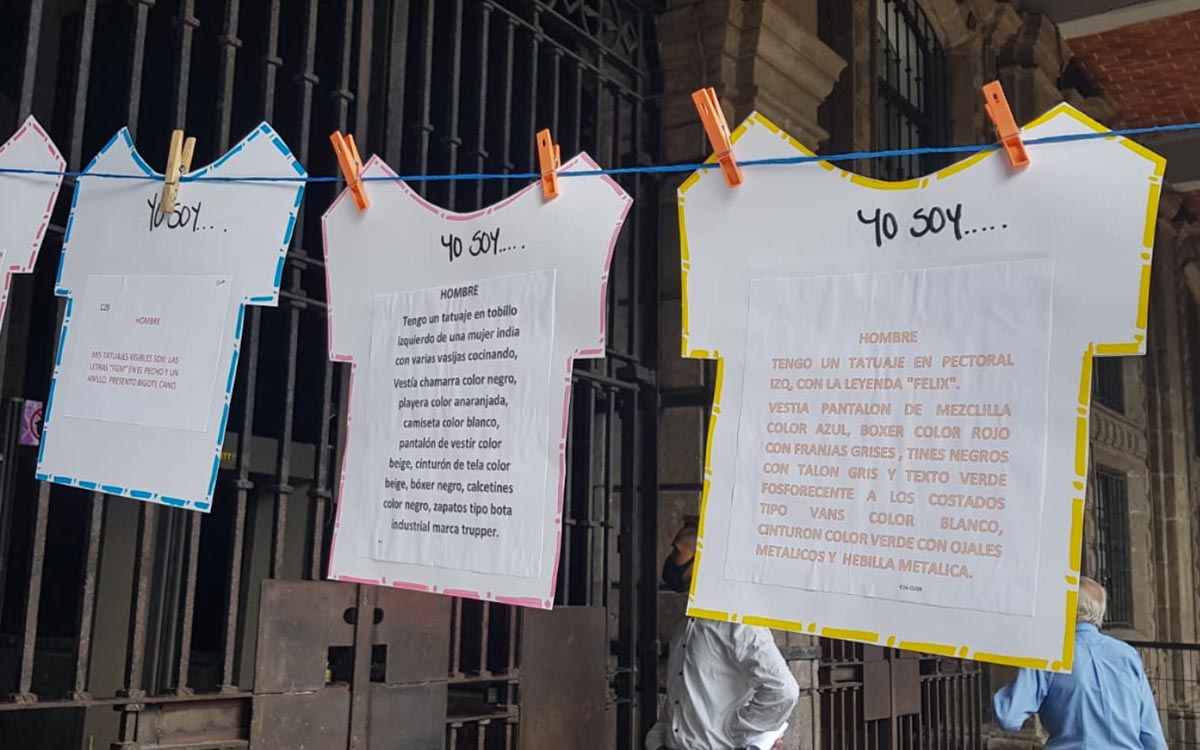 YO SOY....
C29
HOMBRE
MIS TATUAJES VISIBLES SON: LAS
LETRAS "FGM" EN EL PECHO Y UN
ANILLO, PRESENTO BIGOTE CANO.
YO SOY.....
HOMBRE
Tengo un tatuaje en tobillo
izquierdo de una mujer india
con varias vasijas cocinando,
Vestía chamarra color negro,
playera color anaranjada,
camiseta color blanco,
pantalón de vestir color
beige, cinturón de tela color
beige, bóxer negro, calcetines
color negro, zapatos tipo bota
industrial marca trupper.
YO SOY.....
HOMBRE
TENGO UN TATUAJE EN PECTORAL
IZQ, CON LA LEYENDA "FELIX".
VESTIA PANTALON DE MEZCLILLA
COLOR AZUL, BOXER COLOR ROJO
CON FRANJAS GRISES , TINES NEGROS
CON TALON GRIS Y TEXTO VERDE
FOSFORECENTE A LOS COSTADOS
TIPO VANS COLOR BLANCO,
CINTURON COLOR VERDE CON OJALES
METALICOS Y HEBILLA METALICA.